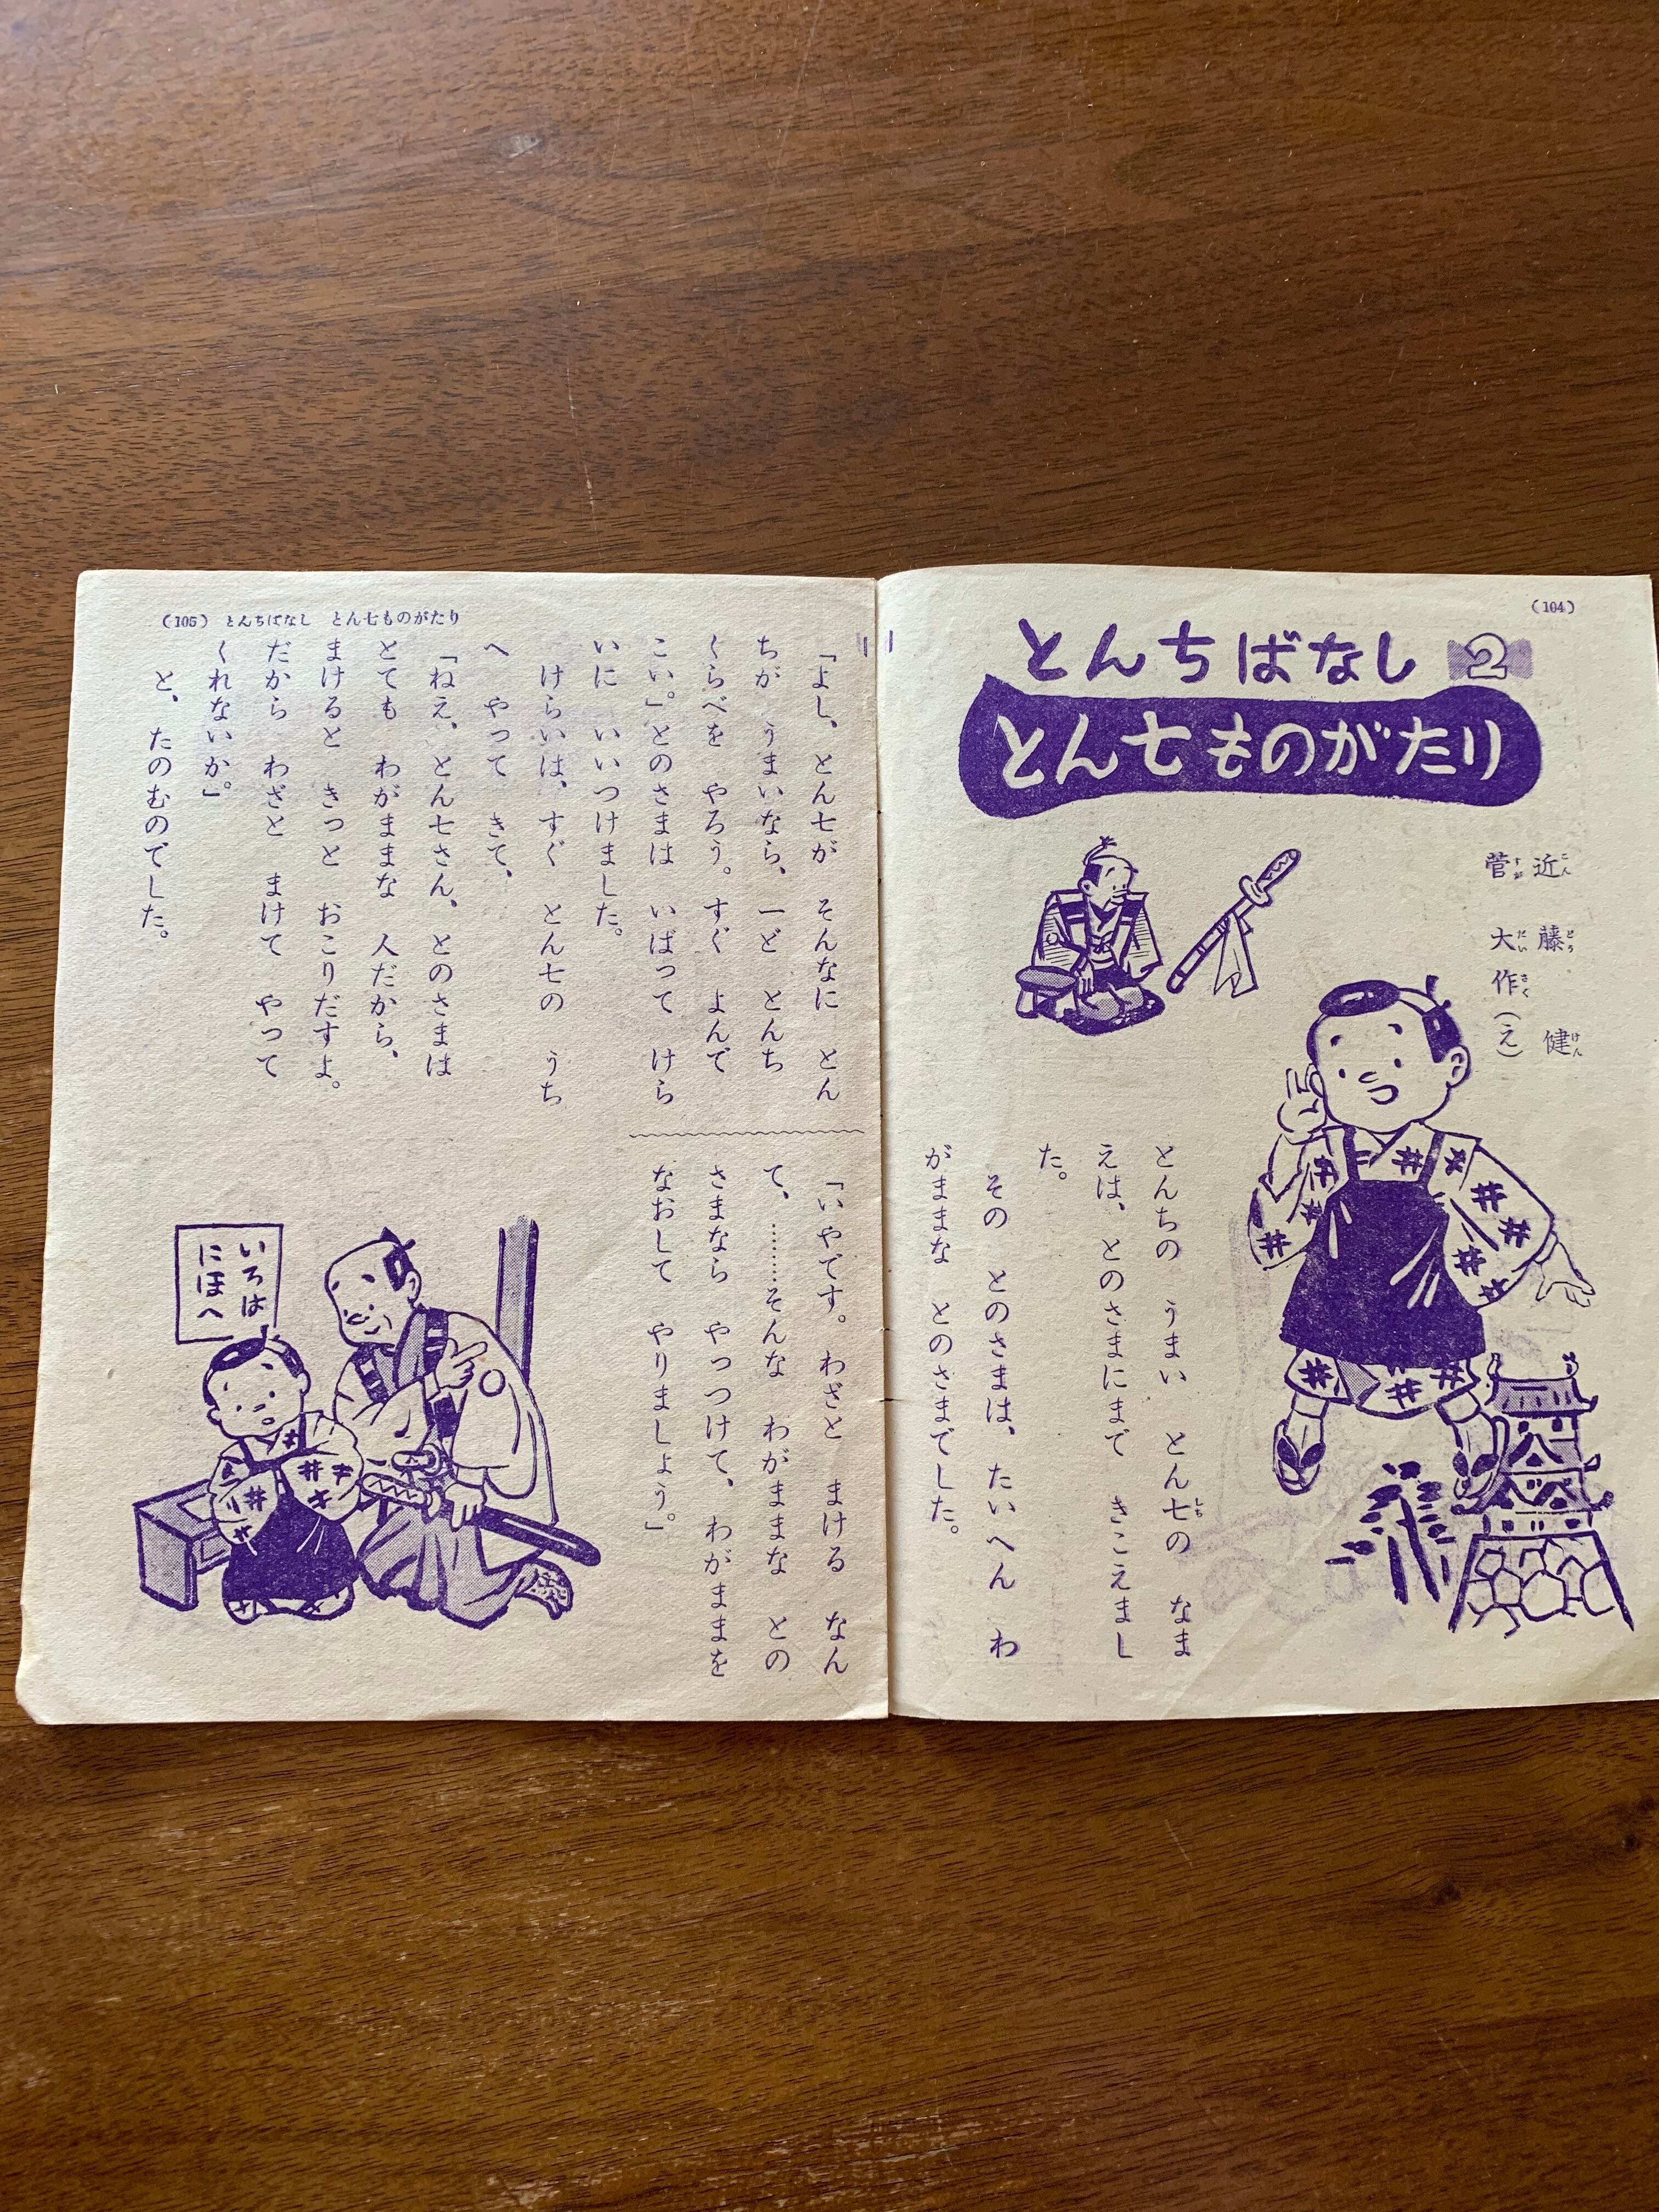 (104)
とんちばなし 2
とん七ものがたり
近こん藤とう 健けん
菅すが 大だい作さく(え)
とんちの うまい とん七しちの なま
えは、とのさまにまで きこえまし
た。
その とのさまは、たいへん わ
がままな とのさまでした。
(105) とんちばなし とん七ものがたり
「よし、とん七が そんなに とん
ちが うまいなら、一ど とんち
くらべを やろう。すぐ よんで
こい。」とのさまは いばって けら
いに いいつけました。
けらいは、すぐ とん七の うち
へ やって きて、
「ねえ、とん七さん、とのさまは
とても わがままな 人だから、
まけると きっと おこりだすよ。
だから わざと まけて やって
くれないか。」
と、たのむのでした。
「いやです。わざと まける なん
て、………そんな わがままな との
さまなら やっつけて、わがままを
なおして やりましょう。」
いろは
にほへ